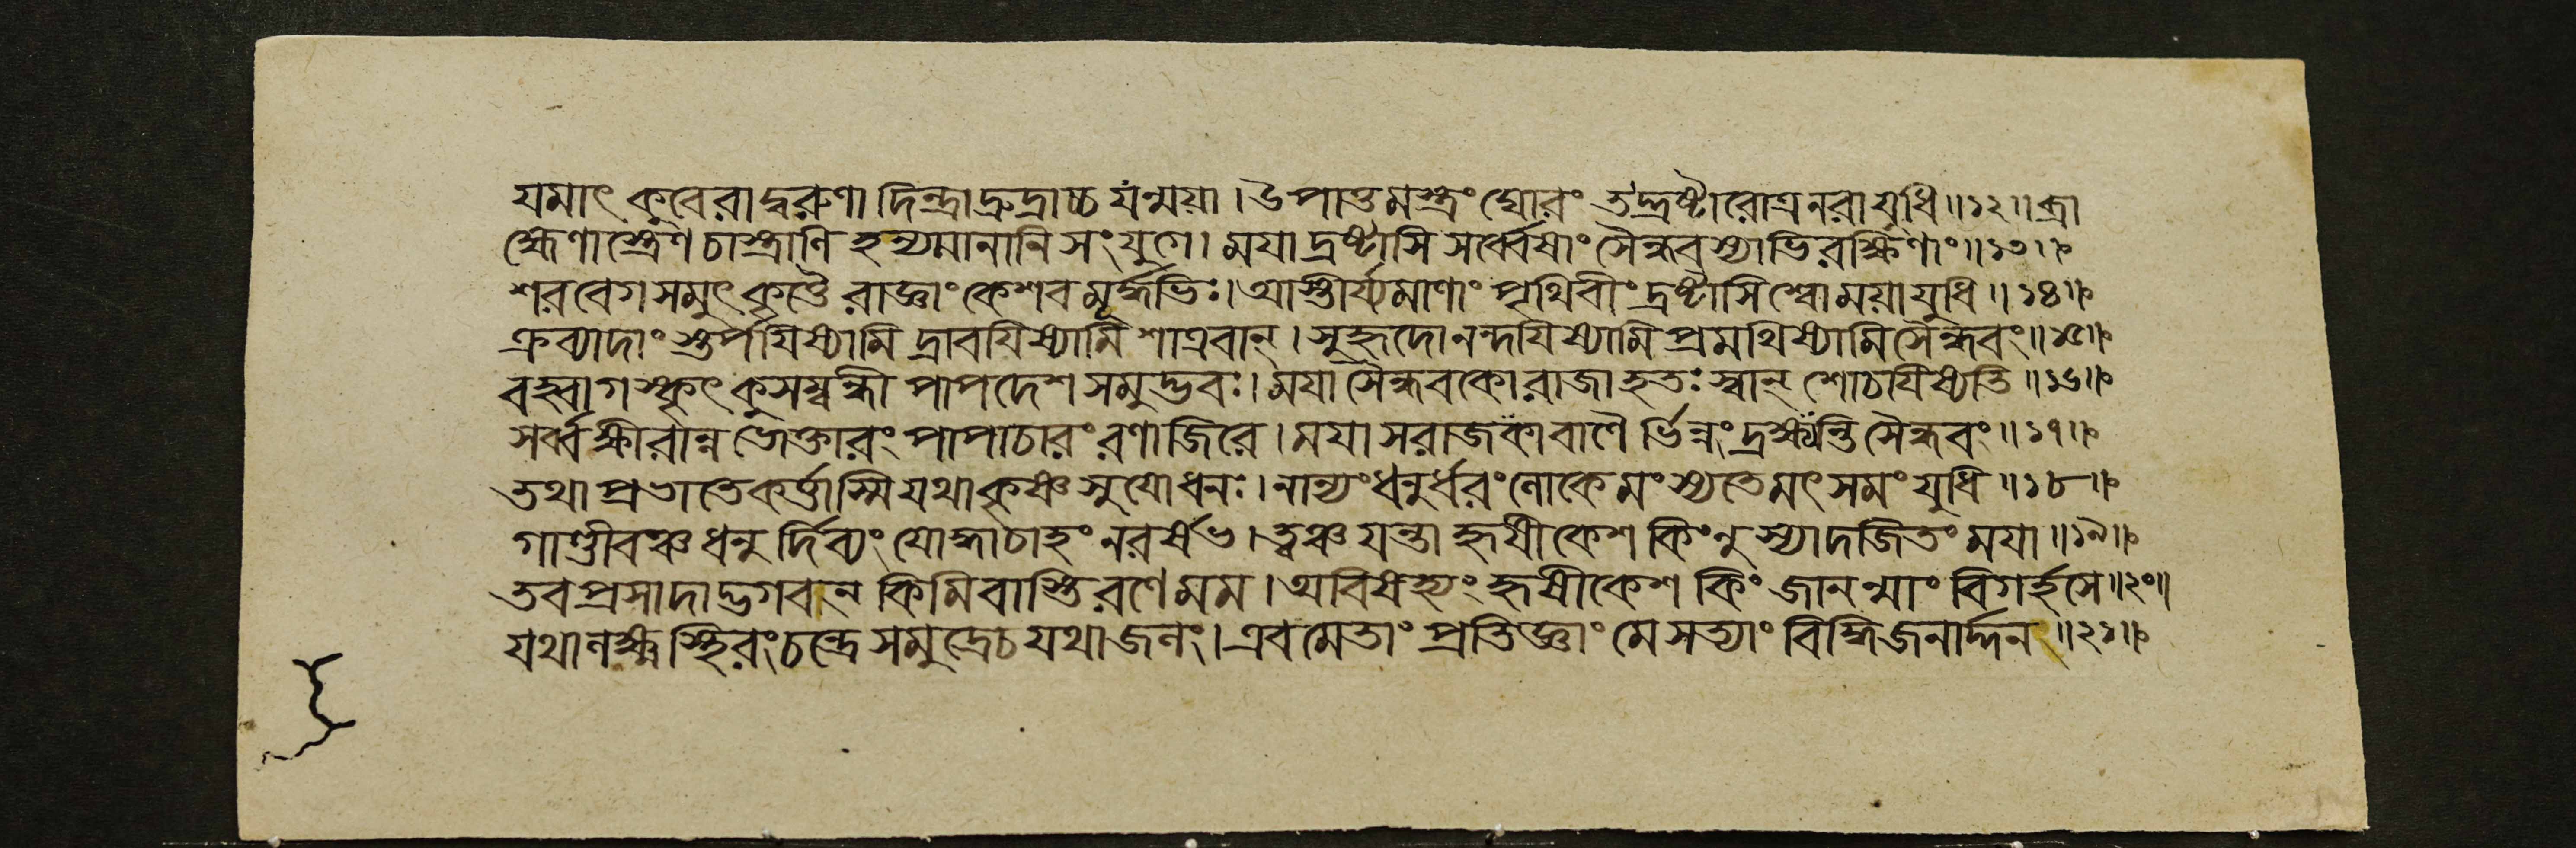 যমাৎ কুবেরাদ্বরুণা দিন্দ্রাদ্রুদ্রাচ্চ যন্ময়া। উপাত্তমস্ত্রং ঘোরং তদ্দ্রষ্টারোত্রনরাযুধি॥১২॥ব্রা
হ্মেণাস্ত্রেণ চাস্ত্রাণি হন্যমানানি সংযুগে। ময়া দ্রষ্টাসি সর্ব্বেষাং সৈন্ধবস্যাভিরক্ষিণাং॥১৩॥
শরবেগসমুৎকৃত্তৈ রাজ্ঞাং কেশবমূর্দ্ধভিঃ। আস্তীর্য্যমাণাং পৃথিবীং দ্রষ্টাসি শ্বোময়াযুধি॥১৪॥
ক্রব্যাদাং স্তর্পয়িষ্যামি দ্রাবয়িষ্যামি শাত্রবান্। সুহৃদোনন্দয়িষ্যামি প্রমথিষ্যামিসৈন্ধবং॥১৫॥
বহ্বাগস্কৃৎ কুসম্বন্ধী পাপদেশ সমুদ্ভবঃ। ময়াসৈন্ধবকোরাজাহতঃ স্বান্ শোচয়িষ্যতি॥১৬॥
সর্ব্বক্ষীরান্নভোক্তারং পাপাচারং রণাজিরে। ময়া সরাজকাবাণৈ র্ভিন্নং দ্রক্ষ্যন্তি সৈন্ধবং॥১৭॥
তথা প্রভাতেকর্ত্তাস্মি যথাকৃষ্ণ সুযোধনঃ। নান্যং ধনুর্ধরং লোকেমংস্যতে মৎসমং যুধি॥১৮॥
গাণ্ডীবঞ্চ ধনুর্দিব্যং যোদ্ধাচাহং নরর্ষভ। ত্বঞ্চ যন্তা হৃষীকেশ কিংনু স্যাদজিতং ময়া॥১৯॥
তবপ্রসাদাদ্ভগবান্ কিমিবাস্তি রণেমম। অবিষহ্যং হৃষীকেশ কিং জানন্মাং বিগর্হসে॥২০॥
যথালক্ষ্মস্থিরং চন্দ্রে সমুদ্রেচ যথাজলং। এবমেতাং প্রতিজ্ঞাং মে সত্যাং বিদ্ধিজনার্দ্দন॥২১॥